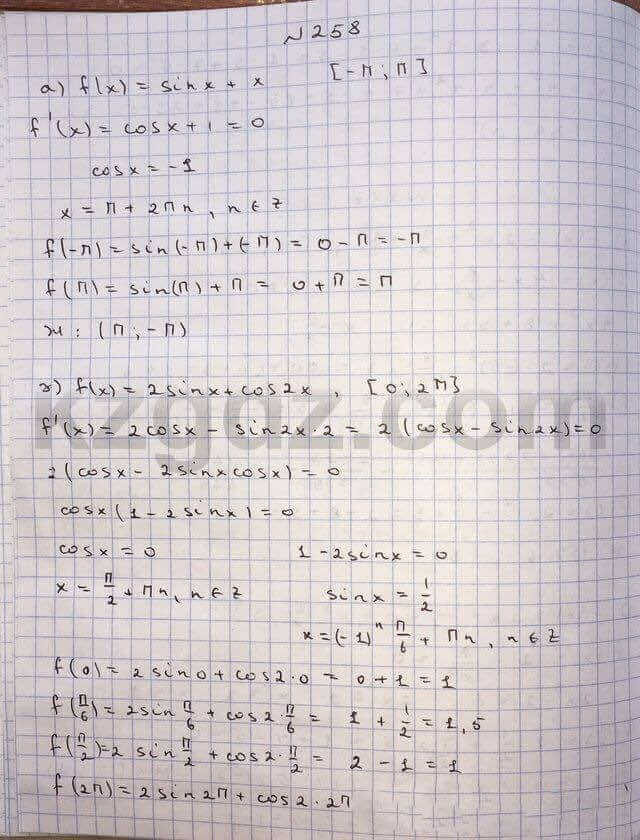 №258
а) f(x) = sinx + x [-π; π]
f'(x) = cosx + 1 = 0
cosx = -1
x = π + 2πn, n ∈ Z
f(-π) = sin(-π) + (-π) = 0 - π = -π
f(π) = sin(π) + π = 0 + π = π
ж: (π; -π)
г) f(x) = 2sinx + cos2x, [0; 2π]
kzgdz.com
f'(x) = 2cosx - sin2x·2 = 2(cosx - sin2x) = 0
2(cosx - 2sinxcosx) = 0
cosx(1 - 2sinx) = 0
cosx = 0 1 - 2sinx = 0
x = π/2 + πn, n ∈ Z sinx = 1/2
x = (-1)^n π/6 + πn, n ∈ Z
f(0) = 2sin0 + cos2·0 = 0 + 1 = 1
f(π/6) = 2sin π/6 + cos2·π/6 = 1 + 1/2 = 1,5
f(π/2) = 2 sin π/2 + cos2·π/2 = 2 - 1 = 1
f(2π) = 2sin2π + cos2·2π